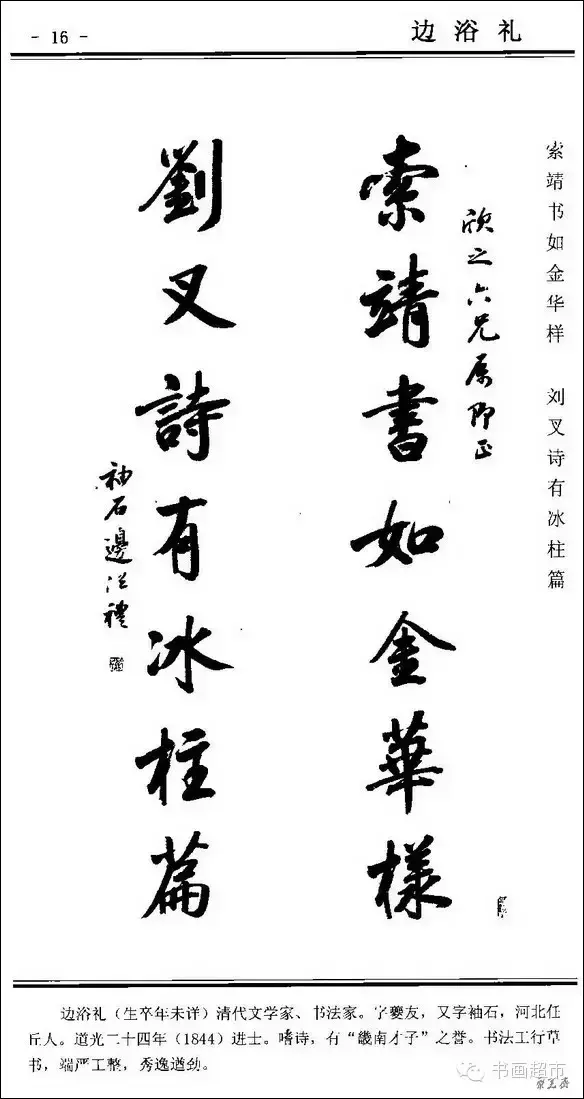 - 16 -
边浴礼
索靖书如金华样 刘叉诗有冰柱篇
欣之六兄属即正
索靖書如金華樣
劉叉詩有冰柱篇
袖石邊浴禮
边浴礼（生卒年未详）清代文学家、书法家。字夔友，又字袖石，河北任
丘人。道光二十四年（1844）进士。嗜诗，有“畿南才子”之誉。书法工行草
书，端严工整，秀逸遒劲。
书画超市